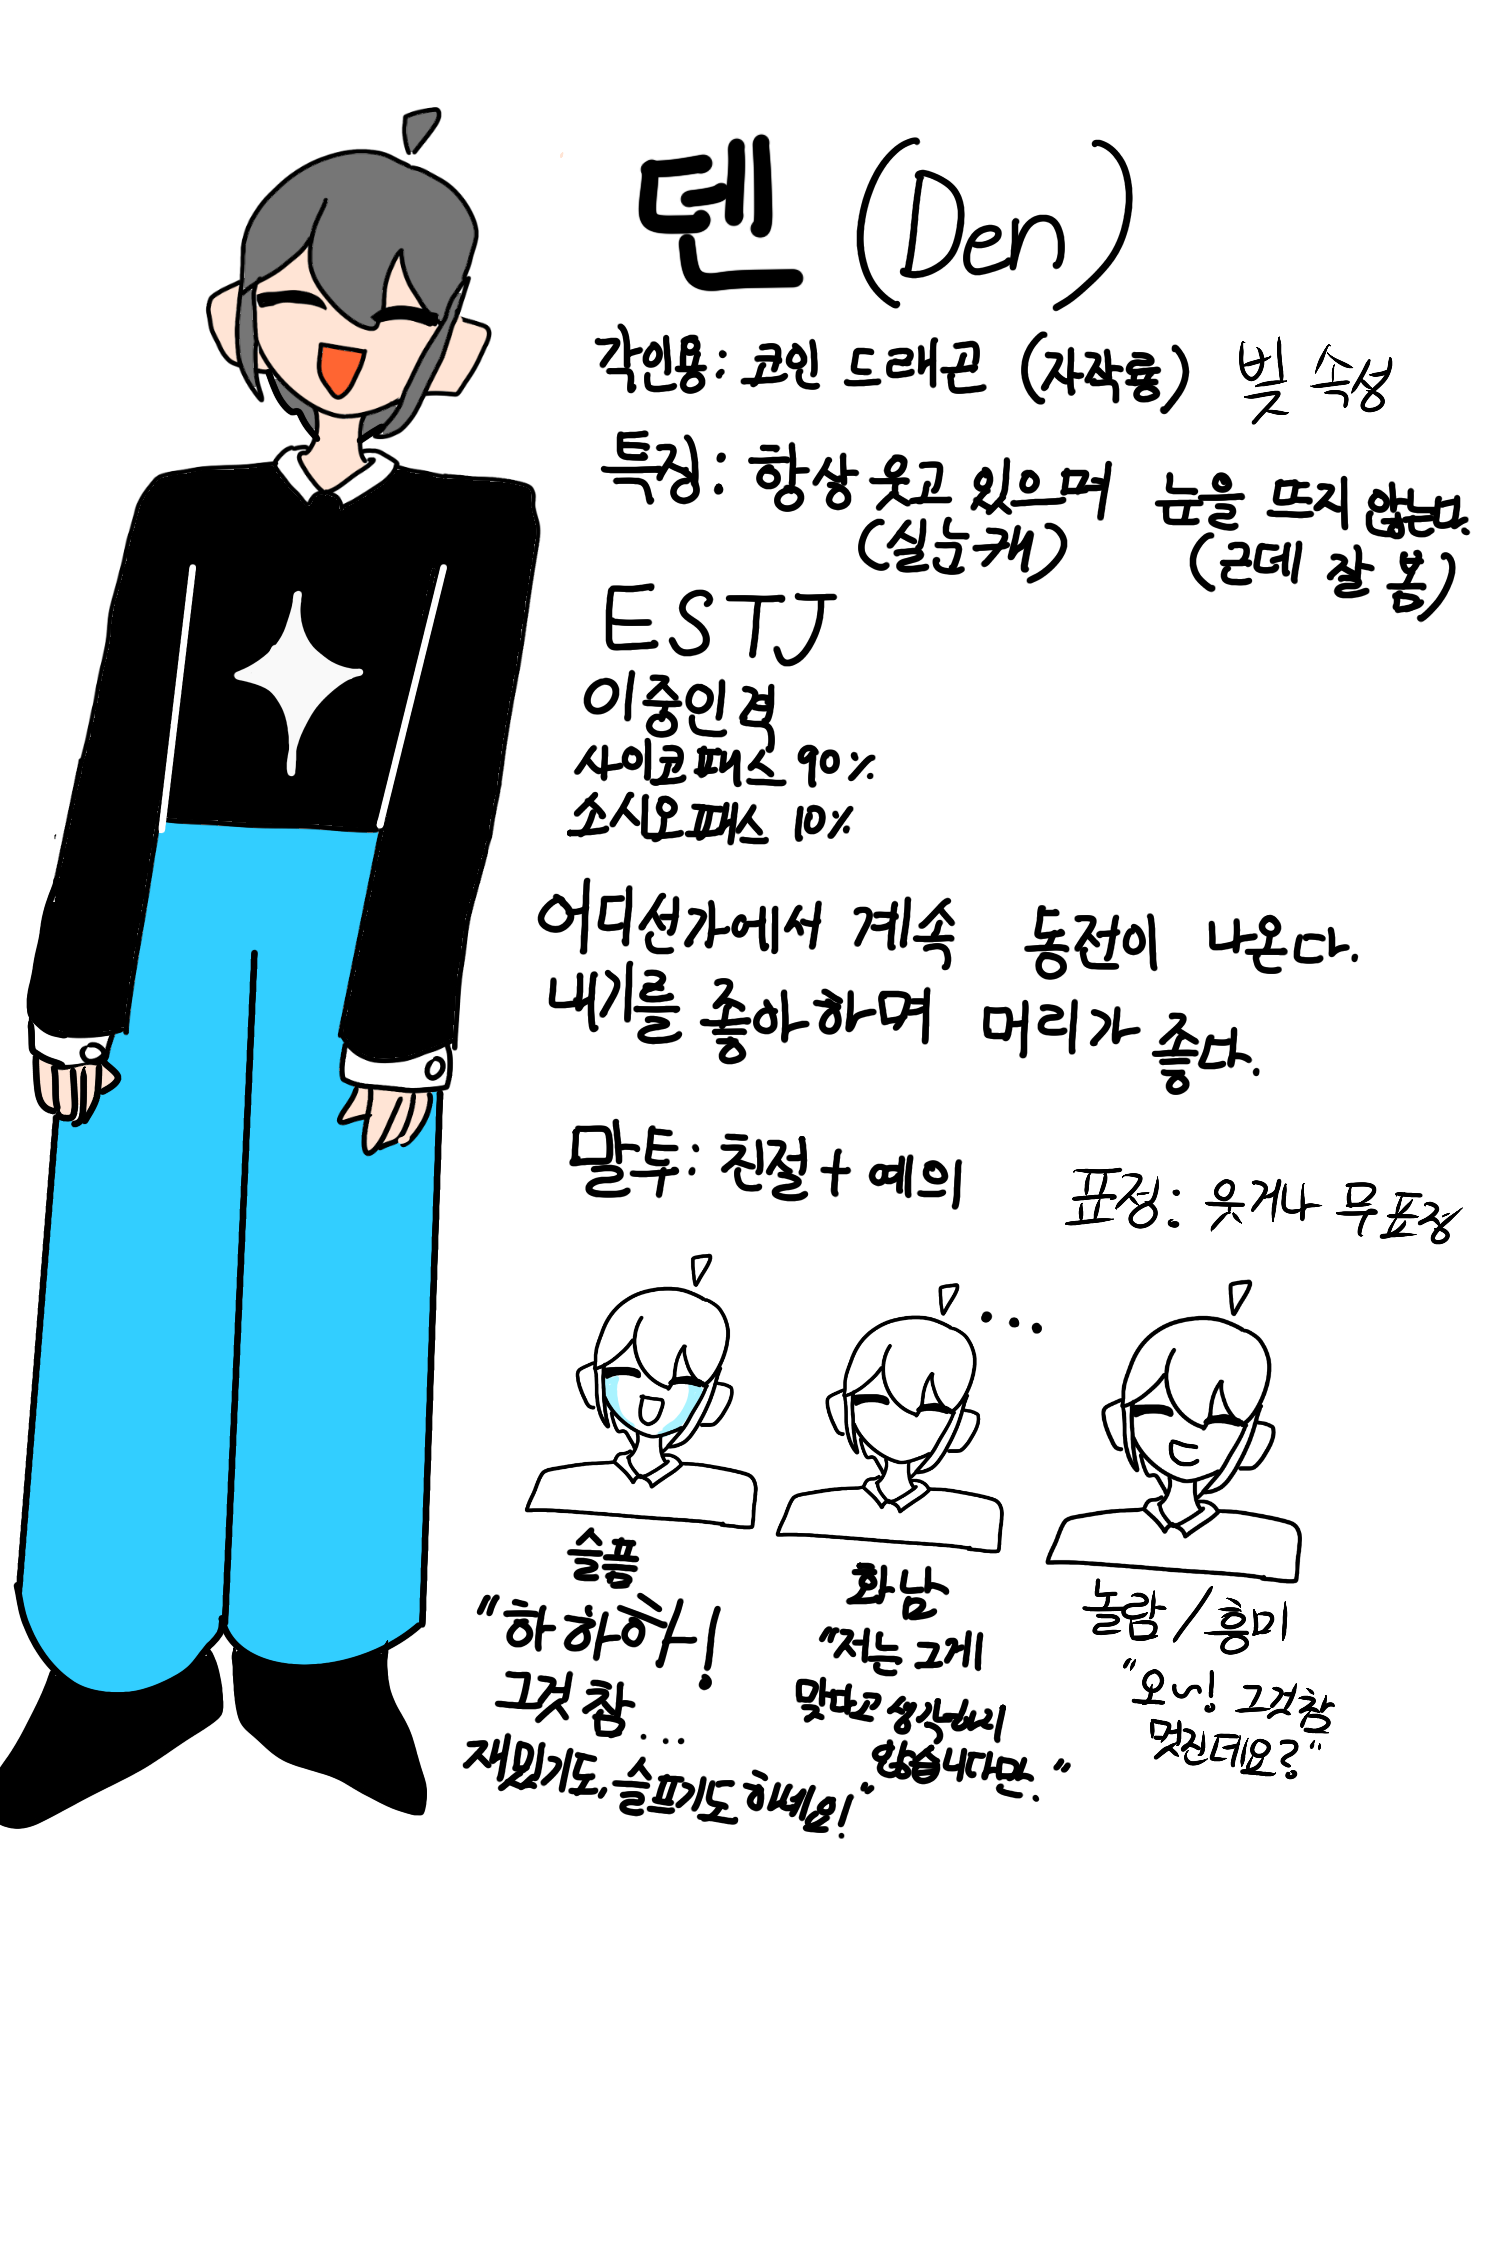 덴 (Den)
각인용: 코인 드래곤 (자작룡) 빛 속성
특징: 항상 웃고 있으며 눈을 뜨지 않는다.
(실눈캐) (근데 잘 봄)
ESTJ
이중인격
사이코패스 90%
소시오패스 10%
어디선가에서 계속 동전이 나온다.
내기를 좋아하며 머리가 좋다.
말투: 친절 + 예의
표정: 웃거나 무표정
...
슬픔
"하하하!
그것 참...
재밌기도, 슬프기도 하네요!"
화남
"저는 그게
맞다고 생각하지
않습니다만."
놀람 / 흥미
"오~! 그것 참
멋진데요?"